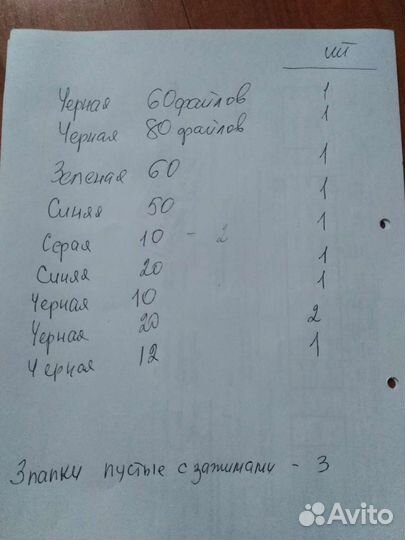 шт
Черная 60 файлов 1
Черная 80 файлов 1
Зеленая 60 1
Синяя 50 1
Серая 10 - 2 1
Синяя 20 1
Черная 10 1
Черная 20 2
Черная 12 1
3 папки пустые с зажимами - 3
Avito